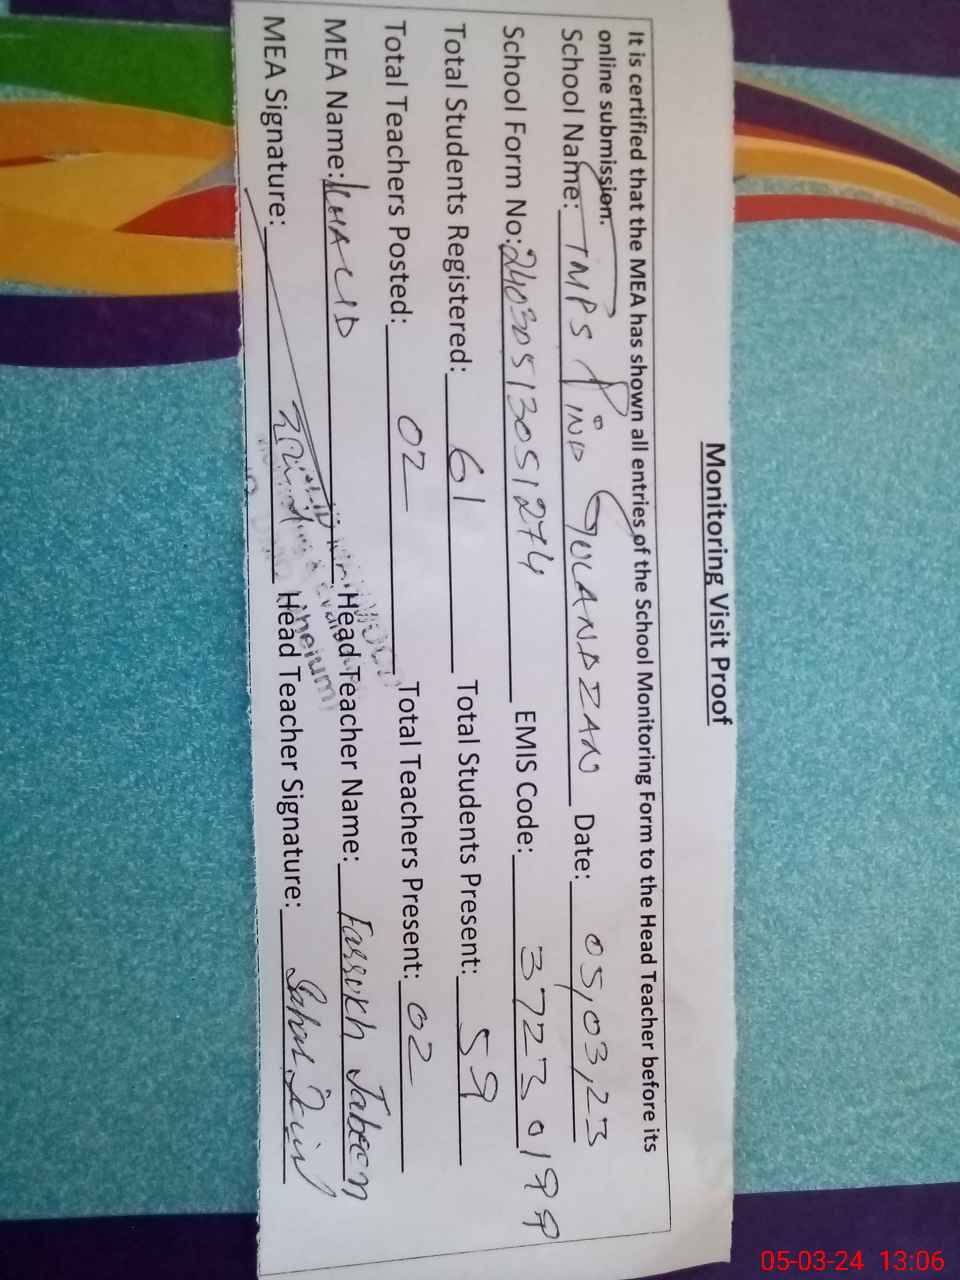 Monitoring Visit Proof
It is certified that the MEA has shown all entries of the School Monitoring Form to the Head Teacher before its
online submission.
School Name: TMPS PIND GOLANDZAN Date: 05,03,23
School Form No: 24030513051274 EMIS Code: 37230199
Total Students Registered: 61 Total Students Present: 59
Total Teachers Posted: 02 Total Teachers Present: 02
MEA Name: Head Teacher Name: Farrukh Jabeen
MEA Signature: Head Teacher Signature:
05-03-24 13:06